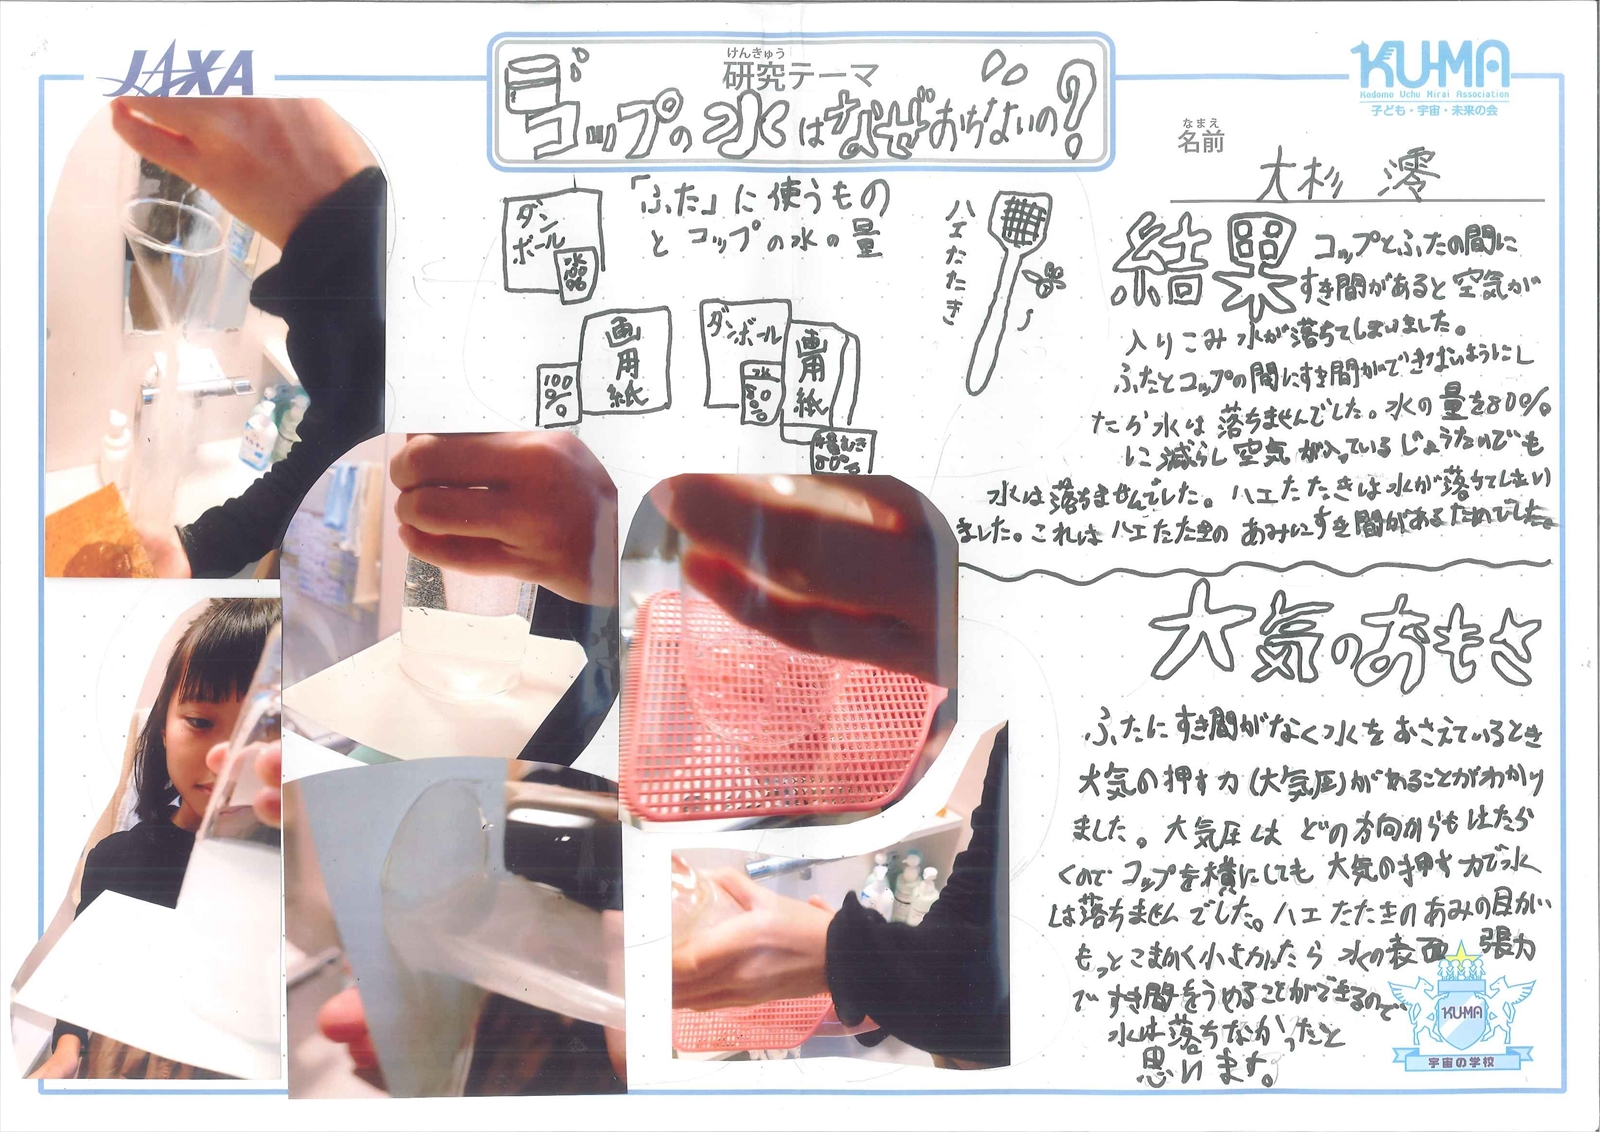 JAXA
けんきゅう
研究テーマ
コップの水はなぜおちないの?
KU-MA
Kodomo Uchu Mirai Association
子ども・宇宙・未来の会
なまえ
名前
大杉 澪
「ふた」に使うもの
とコップの水の量
ダン
ボール
水
100%
画用紙
100%
ダンボール
水
80%
画用紙
横むき
80%
ハエたたき
結果
コップとふたの間に
すき間があると空気が
入りこみ水が落ちてしまいました。
ふたとコップの間にすき間ができないようにし
たら水は落ちませんでした。水の量を80%
に減らし空気が入っているじょうたいでも
水は落ちませんでした。ハエたたきは水が落ちてしまい
ました。これはハエたたきのあみにすき間があるためでした。
大気のおもさ
ふたにすき間がなく水をおさえているとき
大気の押す力(大気圧)があることがわかり
ました。大気圧はどの方向からもはたら
くのでコップを横にしても大気の押す力で水
は落ちませんでした。ハエたたきのあみの目がい
もっとこまかく小さかったら水の表面張力
ですき間をうめることができるので
水は落ちなかったと
思います。
KU-MA
宇宙の学校